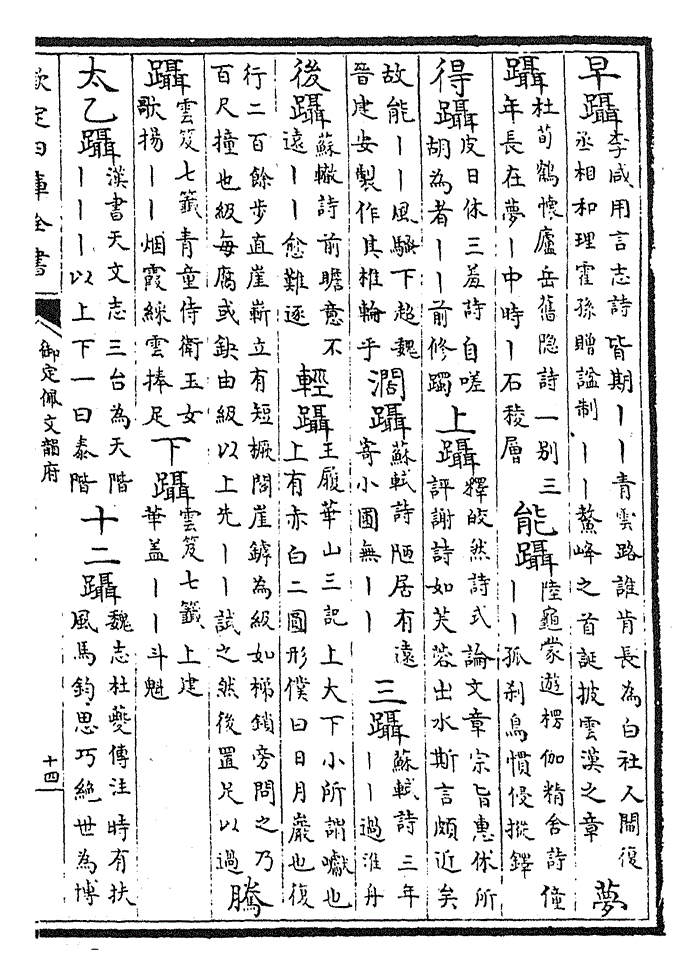 早躡李咸用言志詩皆期丨丨青雲路誰肯長為白社人閻復丞相和理霍孫贈謚制丨丨鰲峰之首誕披雲漢之章夢
躡杜荀鶴懷廬岳舊隐詩一别三年長在夢丨中時丨石稜層能躡陸龜蒙遊楞伽精舍詩僮丨丨孤刹鳥慣侵摐鐸
得躡皮日休三羞詩自嗟胡為者丨丨前修躅上躡釋皎然詩式論文章宗旨惠休所評謝詩如芙蓉出水斯言頗近矣
故能丨丨風騷下超魏晉建安製作其椎輪乎濶躡蘇軾詩陋居有遠寄小圃無丨丨三躡蘇軾詩三年丨丨過淮舟
後躡蘇轍詩前瞻意不遠丨丨愈難逐輕躡王履華山三記上大下小所謂巘也上有赤白二圓形僕曰日月巖也復
行二百餘步直崖嶄立有短橛閣崖罅為級如梯鎖旁問之乃百尺撞也級每腐或缺由級以上先丨丨試之然後置足以過騰
躡雲笈七籤青童侍衛玉女歌揚丨丨烟霞綵雲捧足下躡雲笈七籤上建華盖丨丨斗魁
太乙躡漢書天文志三台為天階丨丨丨以上下一曰泰階十二躡魏志杜夔傳注時有扶風馬鈞思巧絶世為博
欽定四庫全書
御定佩文韻府
十四